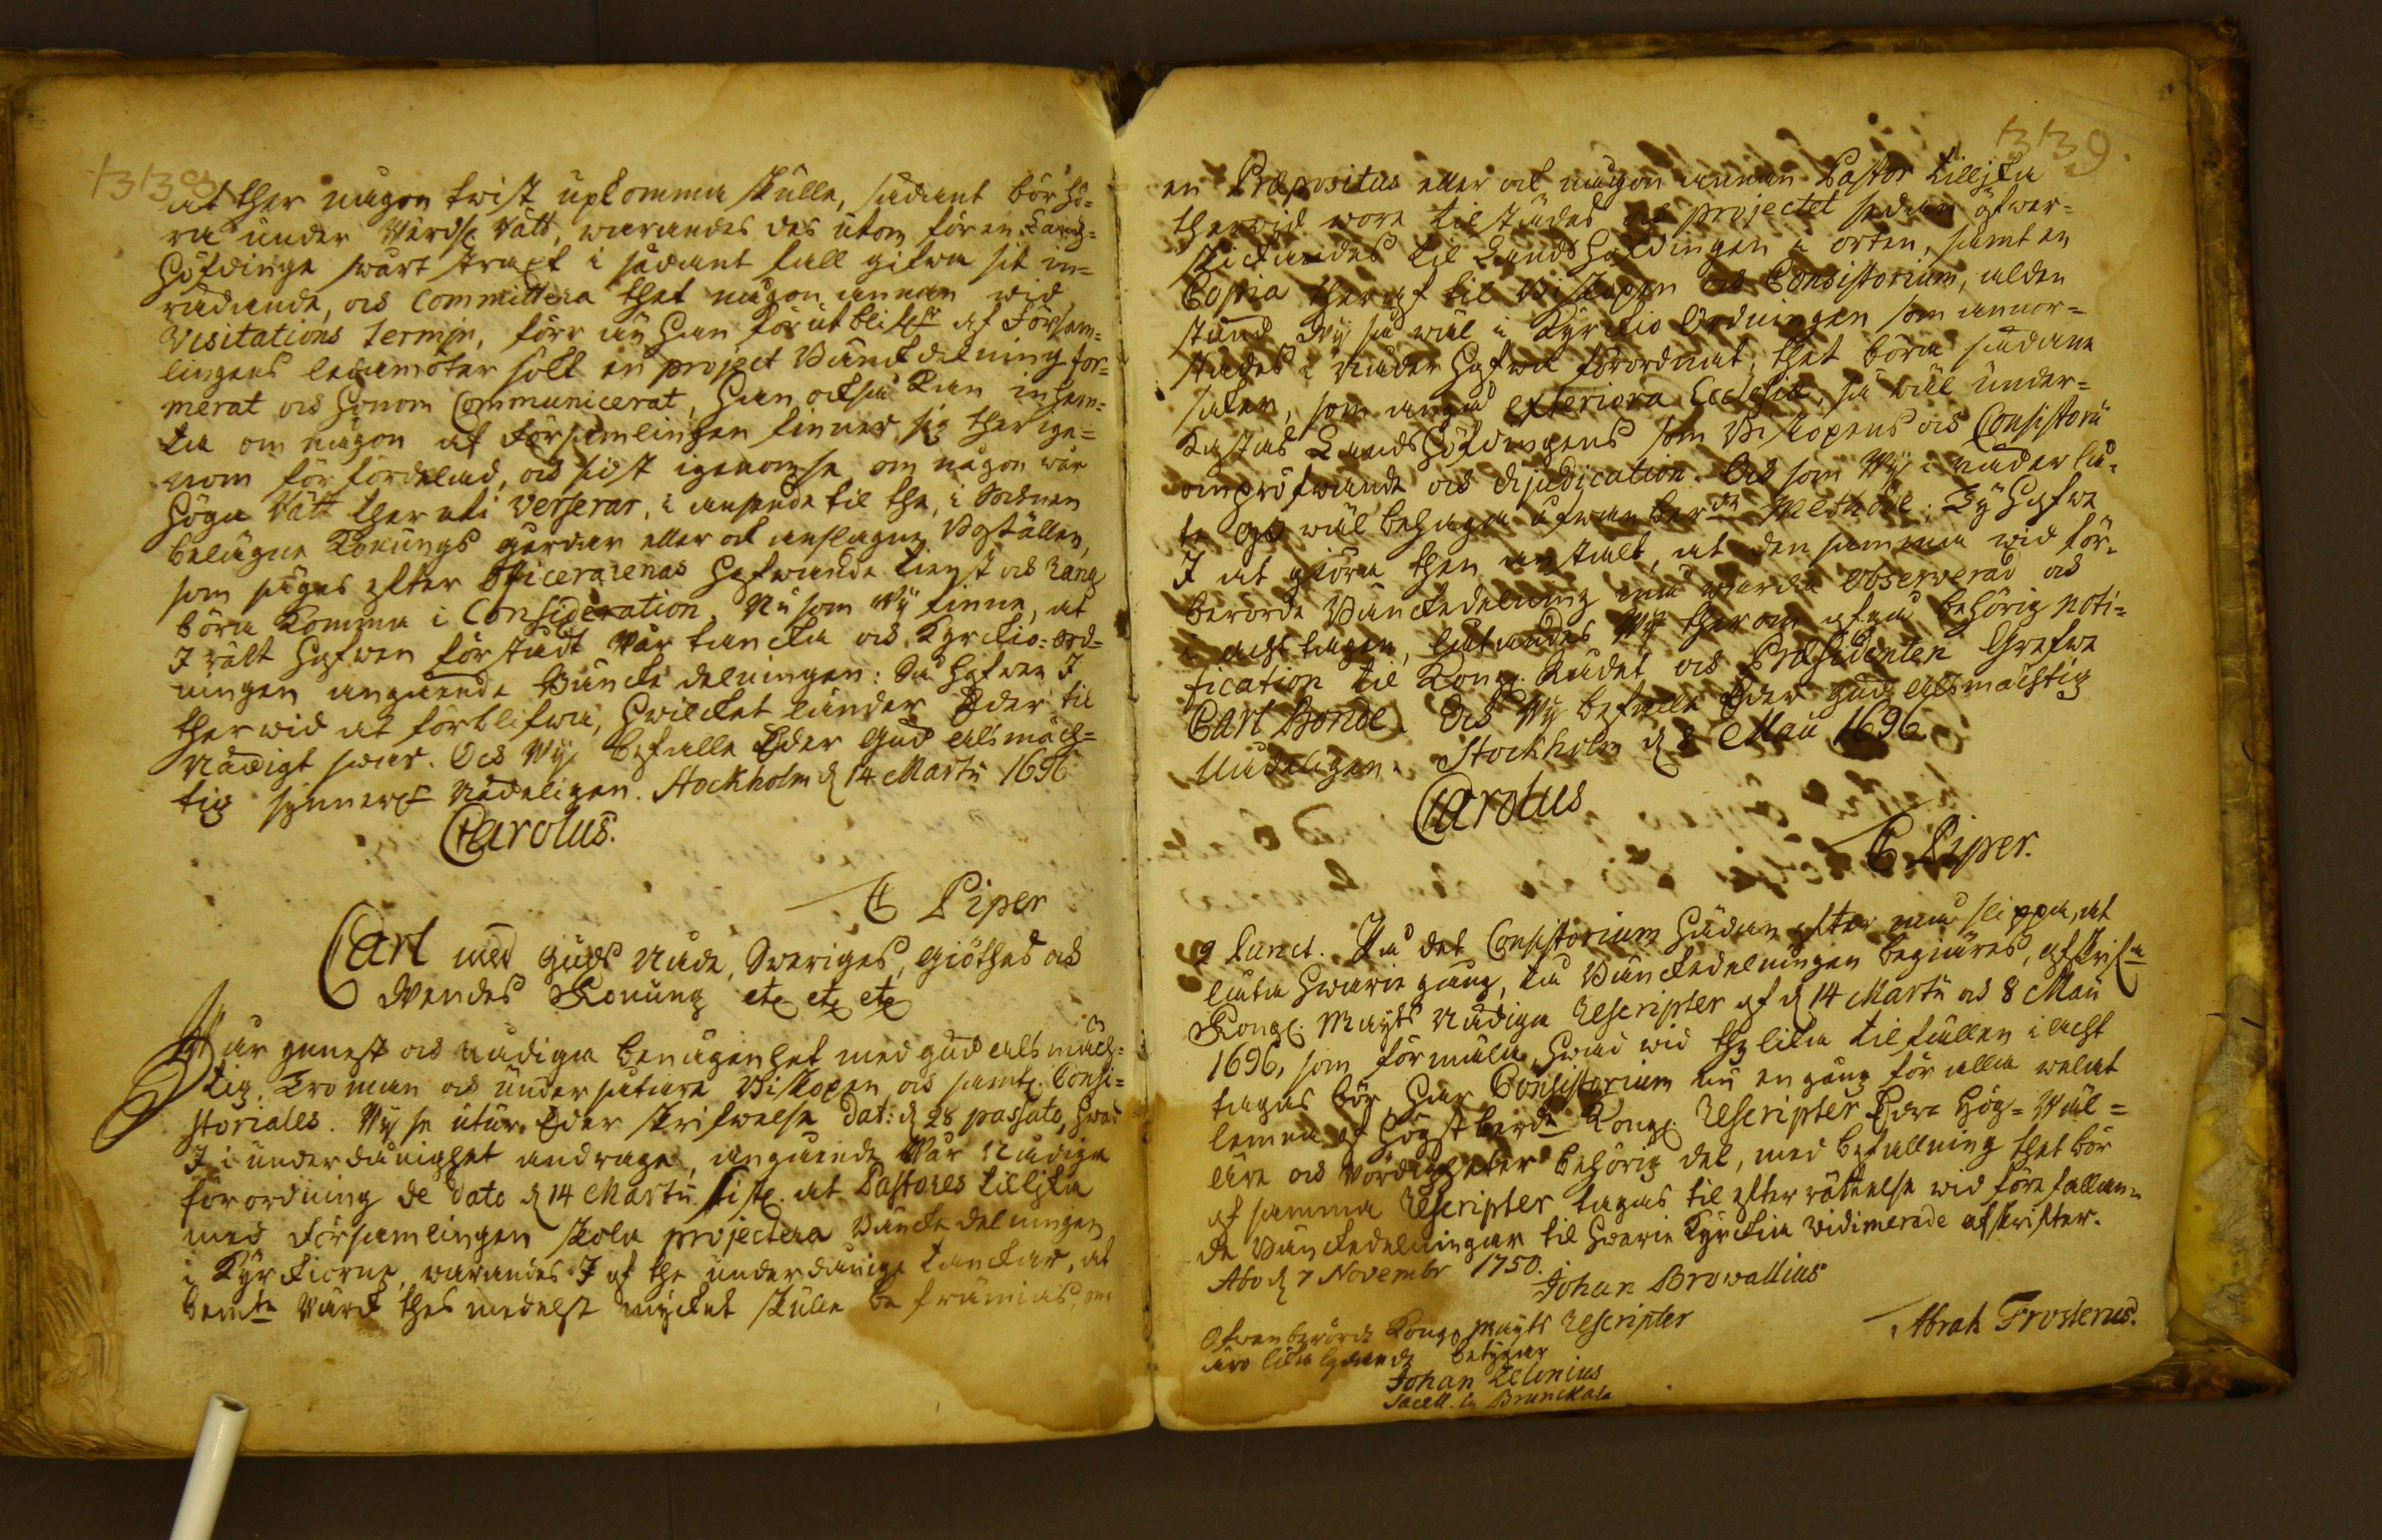 at ther någon twist upkomma skulle, sådant bör hö-
ra under Werdsl. Rätt, warandes des utom för en Landz-
höfdinge swårt straxt i sådant fall gifwa sit in-
rådande, och Committera thet någon annan wid
Visitations Termin, förr än han förut blifwit af Försam-
lingens ledamöter fått en project Bänckdelning for-
merat och honom Communicerat, han ock så kan inhem-
ta om någon af Församlingen finner sig ther ige-
nom förfördelad, och sidst igenomse om någon wår
höga Rätt ther uti verserar, i anseende til the, i Socknen
belägne Konungs gårdar eller ock anslagne Boställen,
som säges efter Officerarenas hafwande tienst och rang
böra komma i Consideration. Nu som Wy finne, at
I rätt hafwen förstådt Wår tancka och Kyrckio-ord-
ningen angående Bäncke delningen: Så hafwen I
therwid at förblifwa, hwilcket länder Eder til
Nådigt swar. Och Wy befalle Eder Gud alsmäch-
tig synnerl. Nådeligen. Stockholm d. 14 Martii 1696
Carolus.
C Piper
Carl med Guds Nåde, Sweriges, Giöthes och
Wendes Konung etc etc etc
Wår gunst och nådiga benägenhet med Gud alsmäch-
tig, Troman och undersåtare Biskopen och samtl. Consi-
storiales. Wy se utur Eder skrifwelse Dat: d. 28 passato, hwad
I i underdånighet andrage, angående Wår Nådiga
förordning de dato d. 14 Martii sistl. at Pastores tillika
med Församlingen skola projectera Bäncke delningen
i Kyrckiorne, warandes I af the underdånige tanckar, at
bem:te Wärck thes medelst mycket skulle befrämias, om
1339.
en Præpositus eller ock någon annan Pastor tillika
therwid wore tilstädes och projectet sedan öfwer-
skickandes til Landshöfdingen i orten, samt en
Copia ther af til Biskopen och Consistorium, alden
stund Wy så wäl i Kyrckio Ordningen som annor-
städes i Nåder hafwa förordnat, thet böra sådana
saker, som angå exteriora Ecclesiæ, så wäl under-
kastas Landshöfdingens som Biskopens och Consistorii
ompröfwande och dijudication. Och som Wy i nåder lå-
te Oss wäl behaga ofwanber:de Method; Ty hafwe
I at giöra then anstalt, at den samma wid för-
berörde Bänckedelning må warda observerad och
i acht tagen, låtandes Wy therom afgå behörig noti-
fication til Kongl. Rådet och Præsidenten Grefwe
Carl Bonde. Och Wy befalle Eder Gud alsmächtig
Nådeligen. Stockholm d. 8 Maii 1696.
Carolus
C Piper.
9 Punct. På det Consistorium hädan efter må slippa, at
låta hwarie gång, tå Bänckedelningen begiäres, afskrifwa
Kongl. Mayts Nådiga Rescripter af d. 14 Martii och 8 Maii
1696, som förmäla, hwad wid thylika tilfällen i acht
tagas bör, har Consistorium nu en gång för alla welat
lemna af högstber:de Kongl. Rescripter Edre Hög-Wäl-
äre och Wördigheter behörig del, med befallning thet bör
af samma Rescripter tagas til efterrättelse wid förefallan-
de Bänckedelningar til hwarie Kyrckia vidimerade afskrifter.
Abo d. 7 Novembr 1750.
Johan Browallius
Abrah Frosterus.
Ofwanberörde Kongl Mayts Rescripter
äro lika lydande betygar
Johan Zelonius
Sacell. in Brunckala